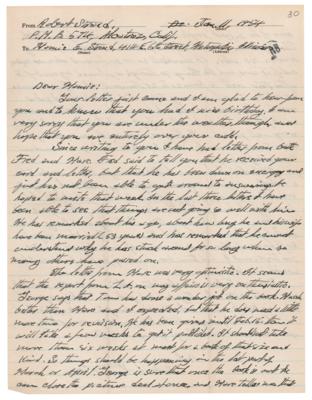 30
From Robert Stroud,
Jan 11 1954
P.M.B. 594, Alcatraz, Calif.
To:
Dear Mamie:
Your letter just came and I am glad to hear from
you and to know that you had a nice birthday. I am
very sorry that you are under the weather, though, and
hope that you are entirely over your cold.
Since writing to you I have had letters from both
Fred and Marc. Fred said to tell you that he received your
card and letter, but that he has been busy on everything and
just has not been able to get around to answering. He
hoped to write that week. In the last three letters I have
been able to see that things are not going so well with him.
He has remarked about his age, about how long he and his wife
have been married, 53 years and has remarked that he cannot
understand why he has stuck around for so long when so
many others have passed on.
The letter from Marc was very optimistic. It seems
that the report from
George says that Tom has done a wonderful job on the book. Much
better than Marc and I expected, but that he does need a little
more time for revision. He has been given until Feb. 1st. Then it
will take a few weeks to get it published. It shouldn't take
more than six weeks at most for a book of that size and
kind. So things should be happening in the last part of
March or April. George is sure that once the book is out he
can close the picture deal at once, and Marc tells me that